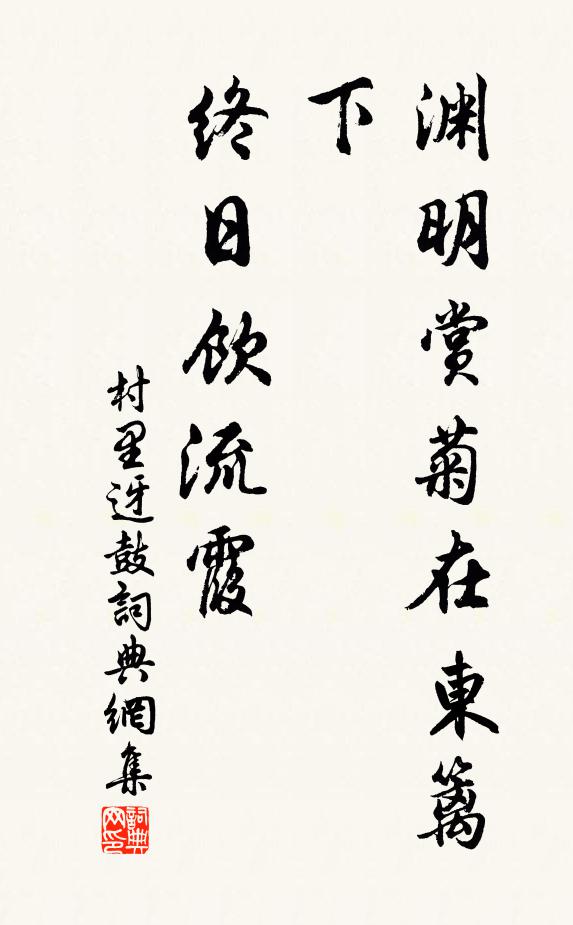 渊明赏菊在東篱
下
终日饮流霞
村里迓鼓詞典網集
詞典网印